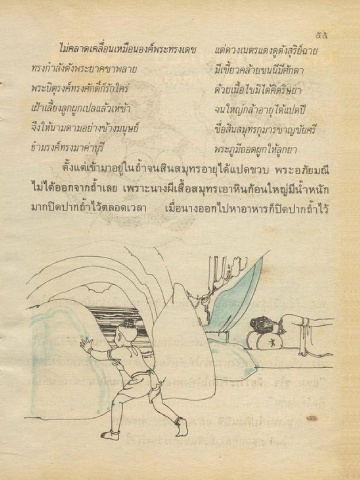 ๕๕
ไม่คลาดเคลื่อนเหมือนองค์พระทรงเดช แต่ดวงเนตรแดงดูดังสุริย์ฉาย
ทรงกำลังดังพระยาคชาพลาย มีเขี้ยวคล้ายชนนีมีศักดา
พระบิตุรงค์ทรงศักดิ์ก็รักใคร่ ด้วยเนื้อไขมิได้คิดริษยา
เฝ้าเลี้ยงลูกผูกเปลแล้วเห่ช้า จนใหญ่กล้าอายุได้แปดปี
จึงให้นามตามอย่างข้างมนุษย์ ชื่อสินสมุทรกุมารชาญชัยศรี
ธำมรงค์ทรงมาค่าบุรี พระภูมีถอดผูกให้ลูกยา
ตั้งแต่เข้ามาอยู่ในถ้ำจนสินสมุทรอายุได้แปดขวบ พระอภัยมณี
ไม่ได้ออกจากถ้ำเลย เพราะนางผีเสื้อสมุทรเอาหินก้อนใหญ่มีน้ำหนัก
มากปิดปากถ้ำไว้ตลอดเวลา เมื่อนางออกไปหาอาหารก็ปิดปากถ้ำไว้